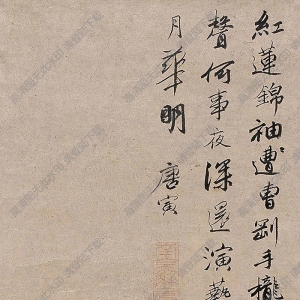 紅蓮錦袖遭曹剛手攏
聲何事夜深還演
月華明
唐寅